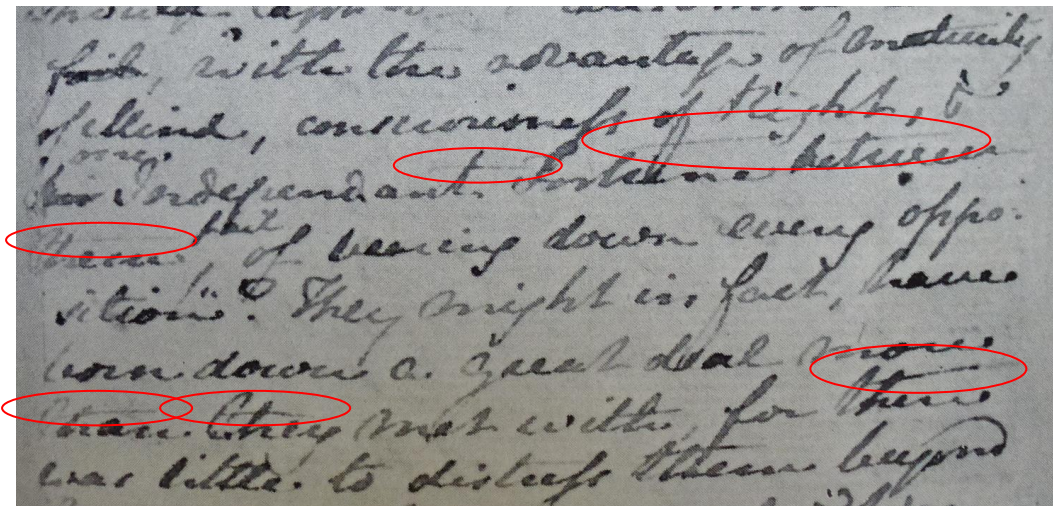 should
fail, with the advantage of maturity
of Mind, consciousness of Right, &
one
an Independant Fortune between
fail
them, of bearing down every oppo-
sition"? They might in fact, have
born down a great deal more
than they met with, for there
was little to distress them beyond